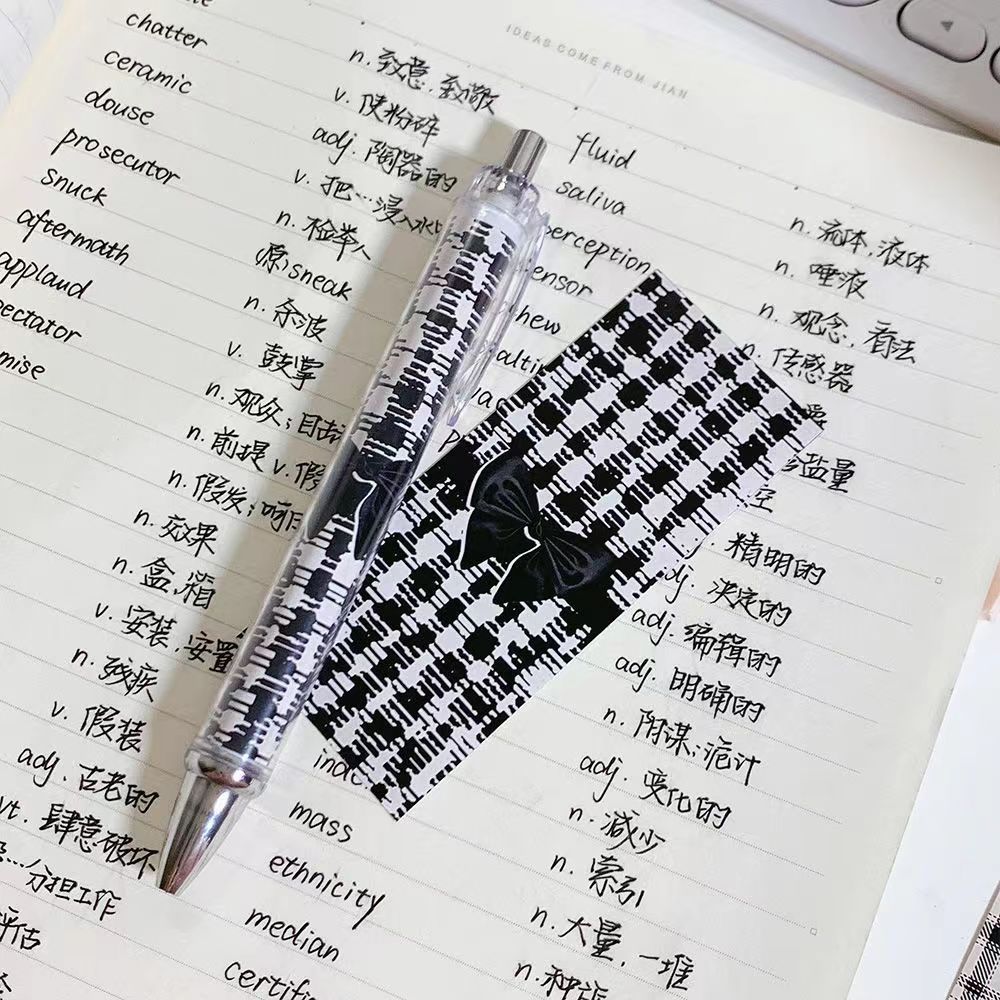 IDEAS COME FROM JIAN
chatter n. 致意，致敬
ceramic v. 使粉碎
douse adj. 陶器的
prosecutor v. 把…浸入水
snuck n. 检举人
aftermath 原；sneak
applaud n. 余波
v. 鼓掌
n. 观众；目击
n. 前提 v. 假
n. 假发；
n. 效果
n. 盒，箱
v. 安装，安置
n. 残疾
v. 假装
adj. 古老的
vt. 肆意破坏
分担工作
评估
fluid n. 流体，液体
saliva n. 唾液
perception n. 观念，看法
n. 传感器
盐量
精明的
决定的
adj. 编辑的
adj. 明确的
n. 阴谋；诡计
adj. 变化的
n. 减少
n. 索引
mass n. 大量，一堆
ethnicity n. 种族
median